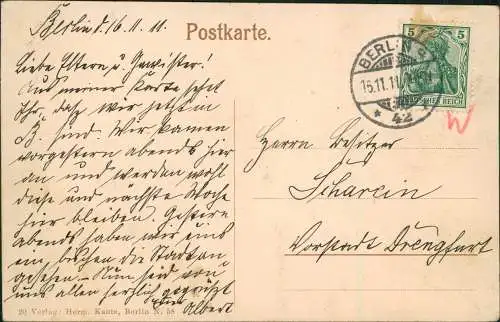 Berlin d. 16.11.11.
Postkarte.
Liebe Eltern u. Gewister!
Aus meiner Karte sehet
Ihr, dasz wir jetzt in
B. sind. Wir kamen
vorgestern abends hier
an und werden wohl
diese und nächste Woche
hier bleiben. Gestern
abends haben wir uns
ein bischen die Stadt an-
gesehen. Nun seid von
uns allen herzlich gegrüszt
Albert
5 5
DEUTSCHES REICH
BERLIN S.
16.11.11
* 42
W
Herrn Besitzer
Scharein
Vorstadt Drengfurt
20 Verlag: Herm. Kants, Berlin N. 58